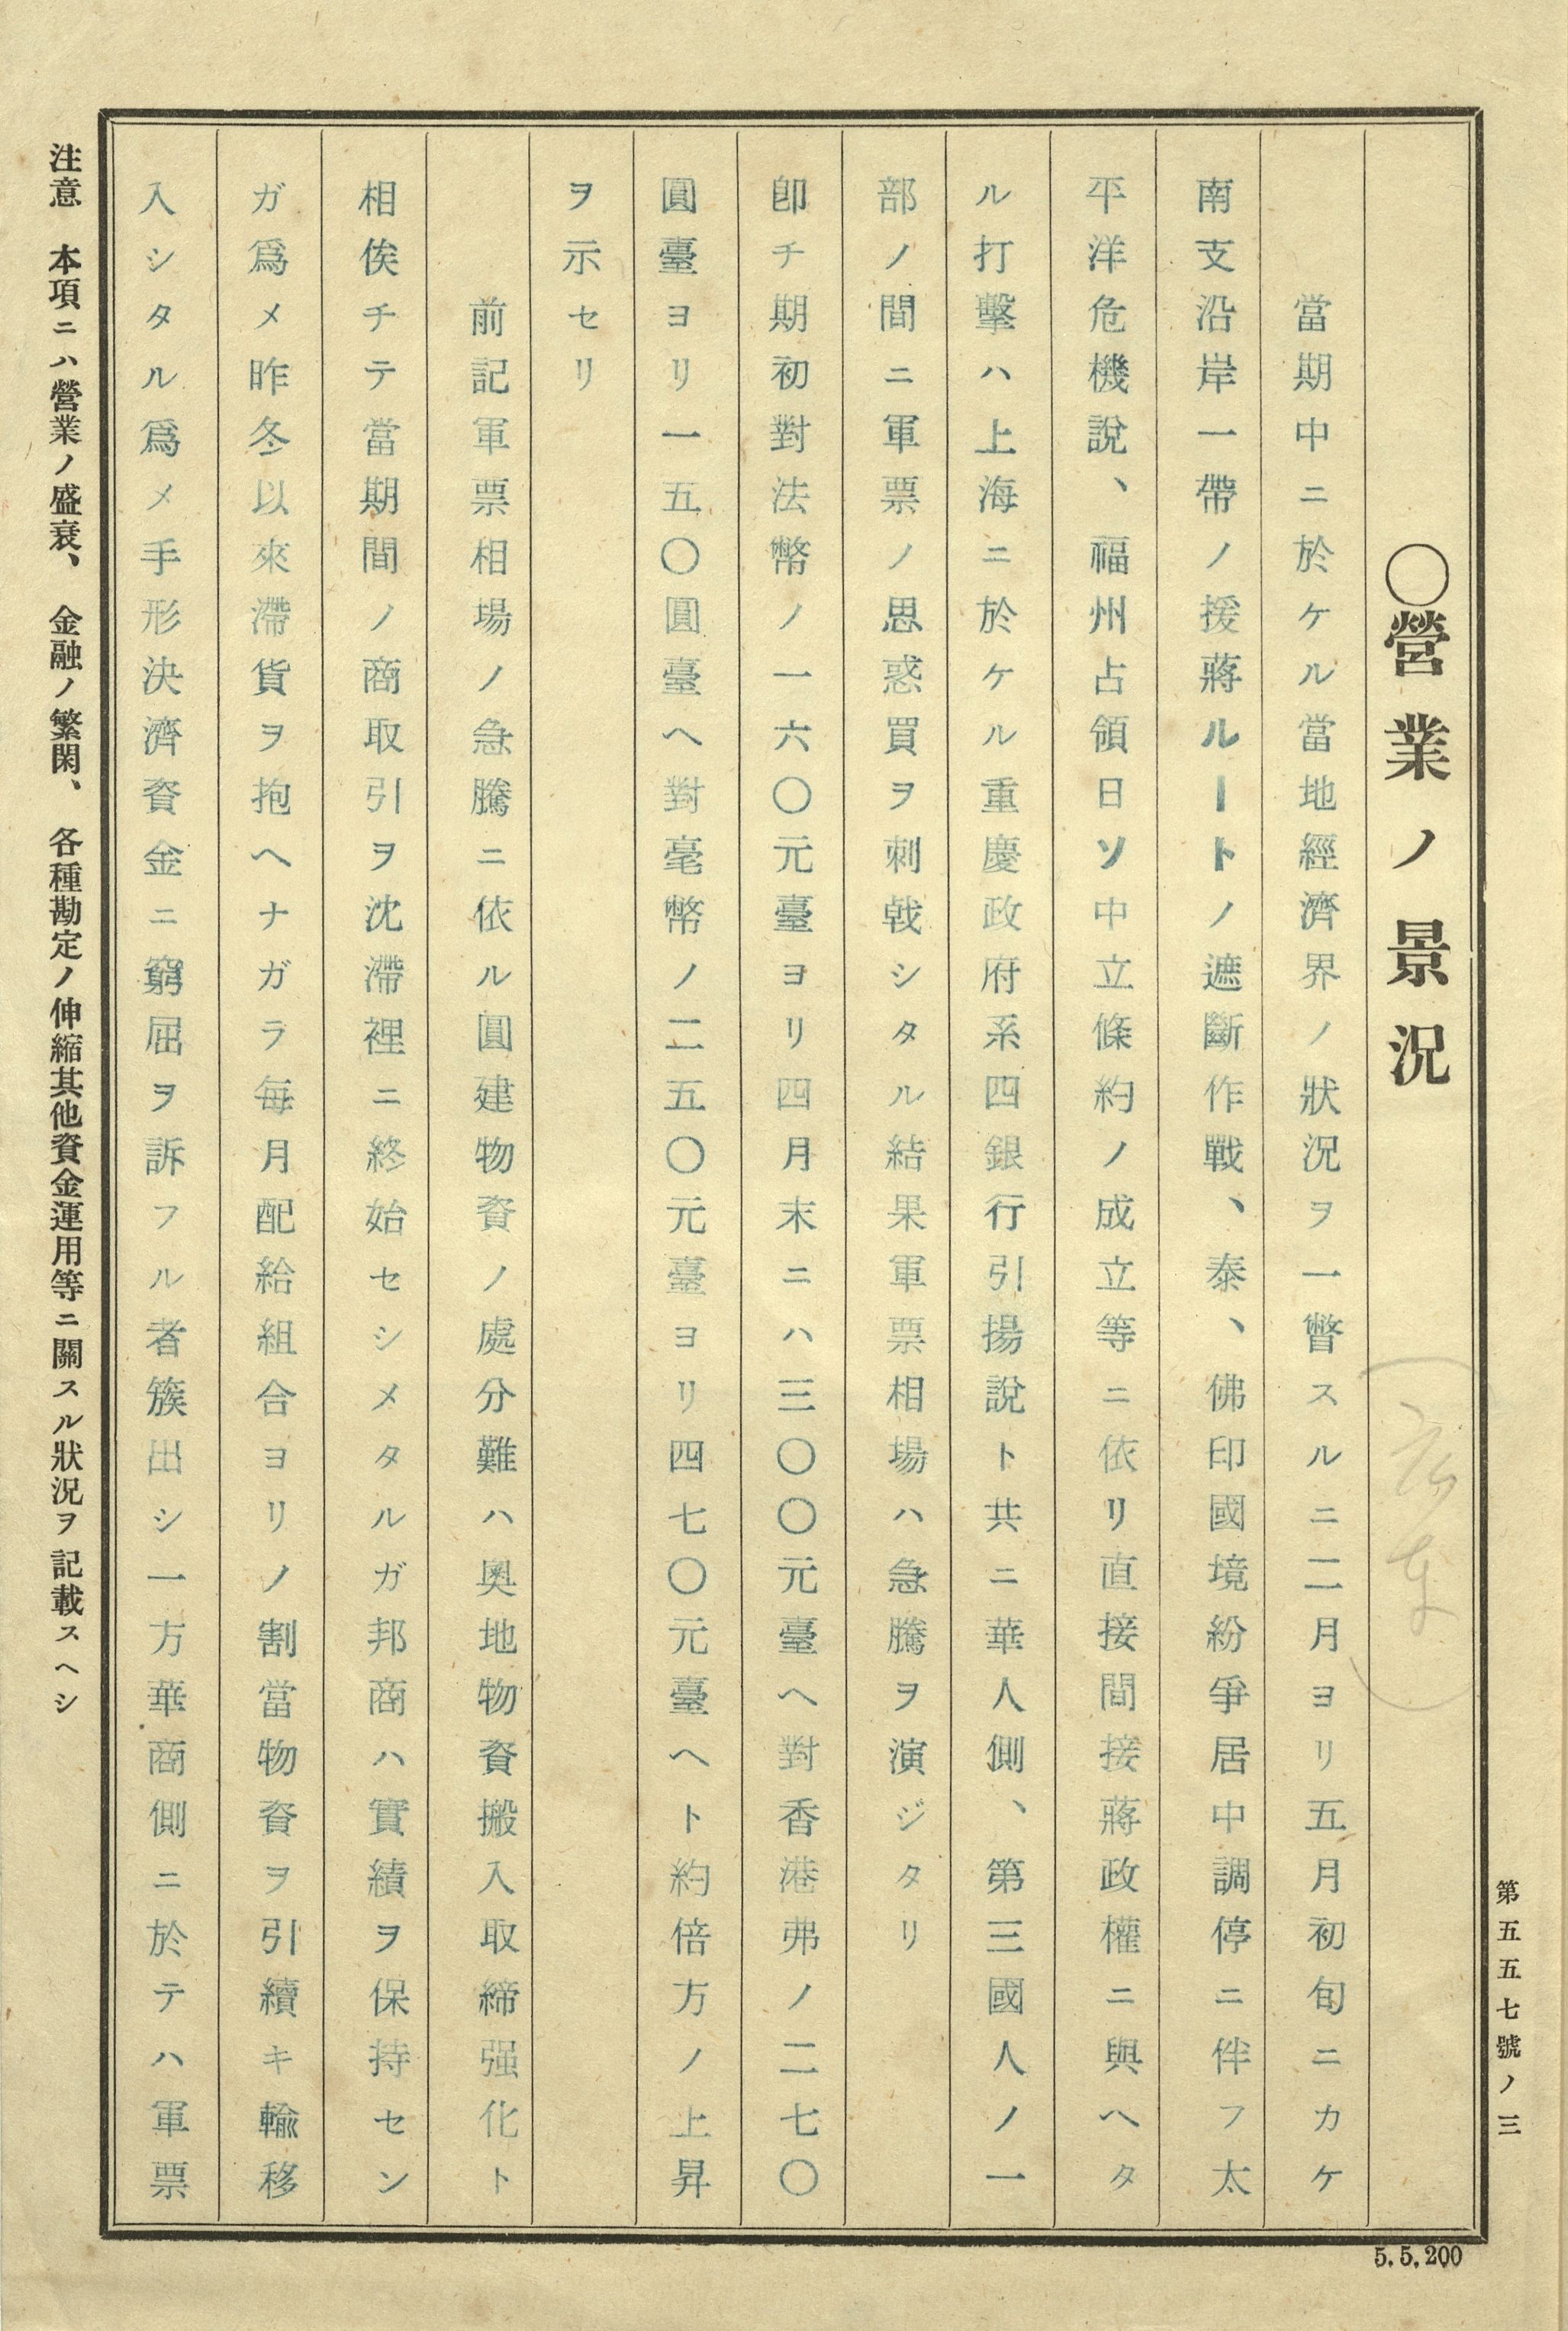 第五五七號ノ三
〇營業ノ景況
當期中ニ於ケル當地經濟界ノ狀況ヲ一瞥スルニ二月ヨリ五月初旬ニカケ
南支沿岸一帶ノ援蔣ルートノ遮斷作戰、泰、佛印國境紛爭居中調停ニ伴フ太
平洋危機說、福州占領日ソ中立條約ノ成立等ニ依リ直接間接蔣政權ニ與ヘタ
ル打擊ハ上海ニ於ケル重慶政府系四銀行引揚說ト共ニ華人側、第三國人ノ一
部ノ間ニ軍票ノ思惑買ヲ刺戟シタル結果軍票相場ハ急騰ヲ演ジタリ
卽チ期初對法幣ノ一六〇元臺ヨリ四月末ニハ三〇〇元臺ヘ對香港弗ノ二七〇
圓臺ヨリ一五〇圓臺ヘ對毫幣ノ二五〇元臺ヨリ四七〇元臺ヘト約倍方ノ上昇
ヲ示セリ
前記軍票相場ノ急騰ニ依ル圓建物資ノ處分難ハ奧地物資搬入取締强化ト
相俟チテ當期間ノ商取引ヲ沈滯裡ニ終始セシメタルガ邦商ハ實績ヲ保持セン
ガ爲メ昨冬以來滯貨ヲ抱ヘナガラ每月配給組合ヨリノ割當物資ヲ引續キ輸移
入シタル爲メ手形決濟資金ニ窮屈ヲ訴フル者簇出シ一方華商側ニ於テハ軍票
注意 本項ニハ營業ノ盛衰、金融ノ繁閑、各種勘定ノ伸縮其他資金運用等ニ關スル狀況ヲ記載スヘシ
5.5.200